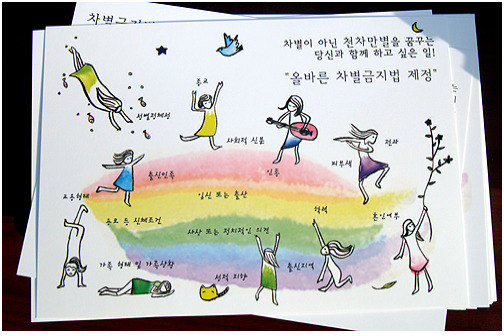 차별이 아닌 천차만별을 꿈꾸는
당신과 함께 하고 싶은 일!
"올바른 차별금지법 제정"
종교
성별정체성
사회적 신분
인종
피부색
전과
출신민족
고용형태
임신 또는 출산
용모 등 신체조건
학력
혼인여부
사상 또는 정치적인 의견
가족 형태 및 가족상황
성적 지향
출신지역
차별금지법